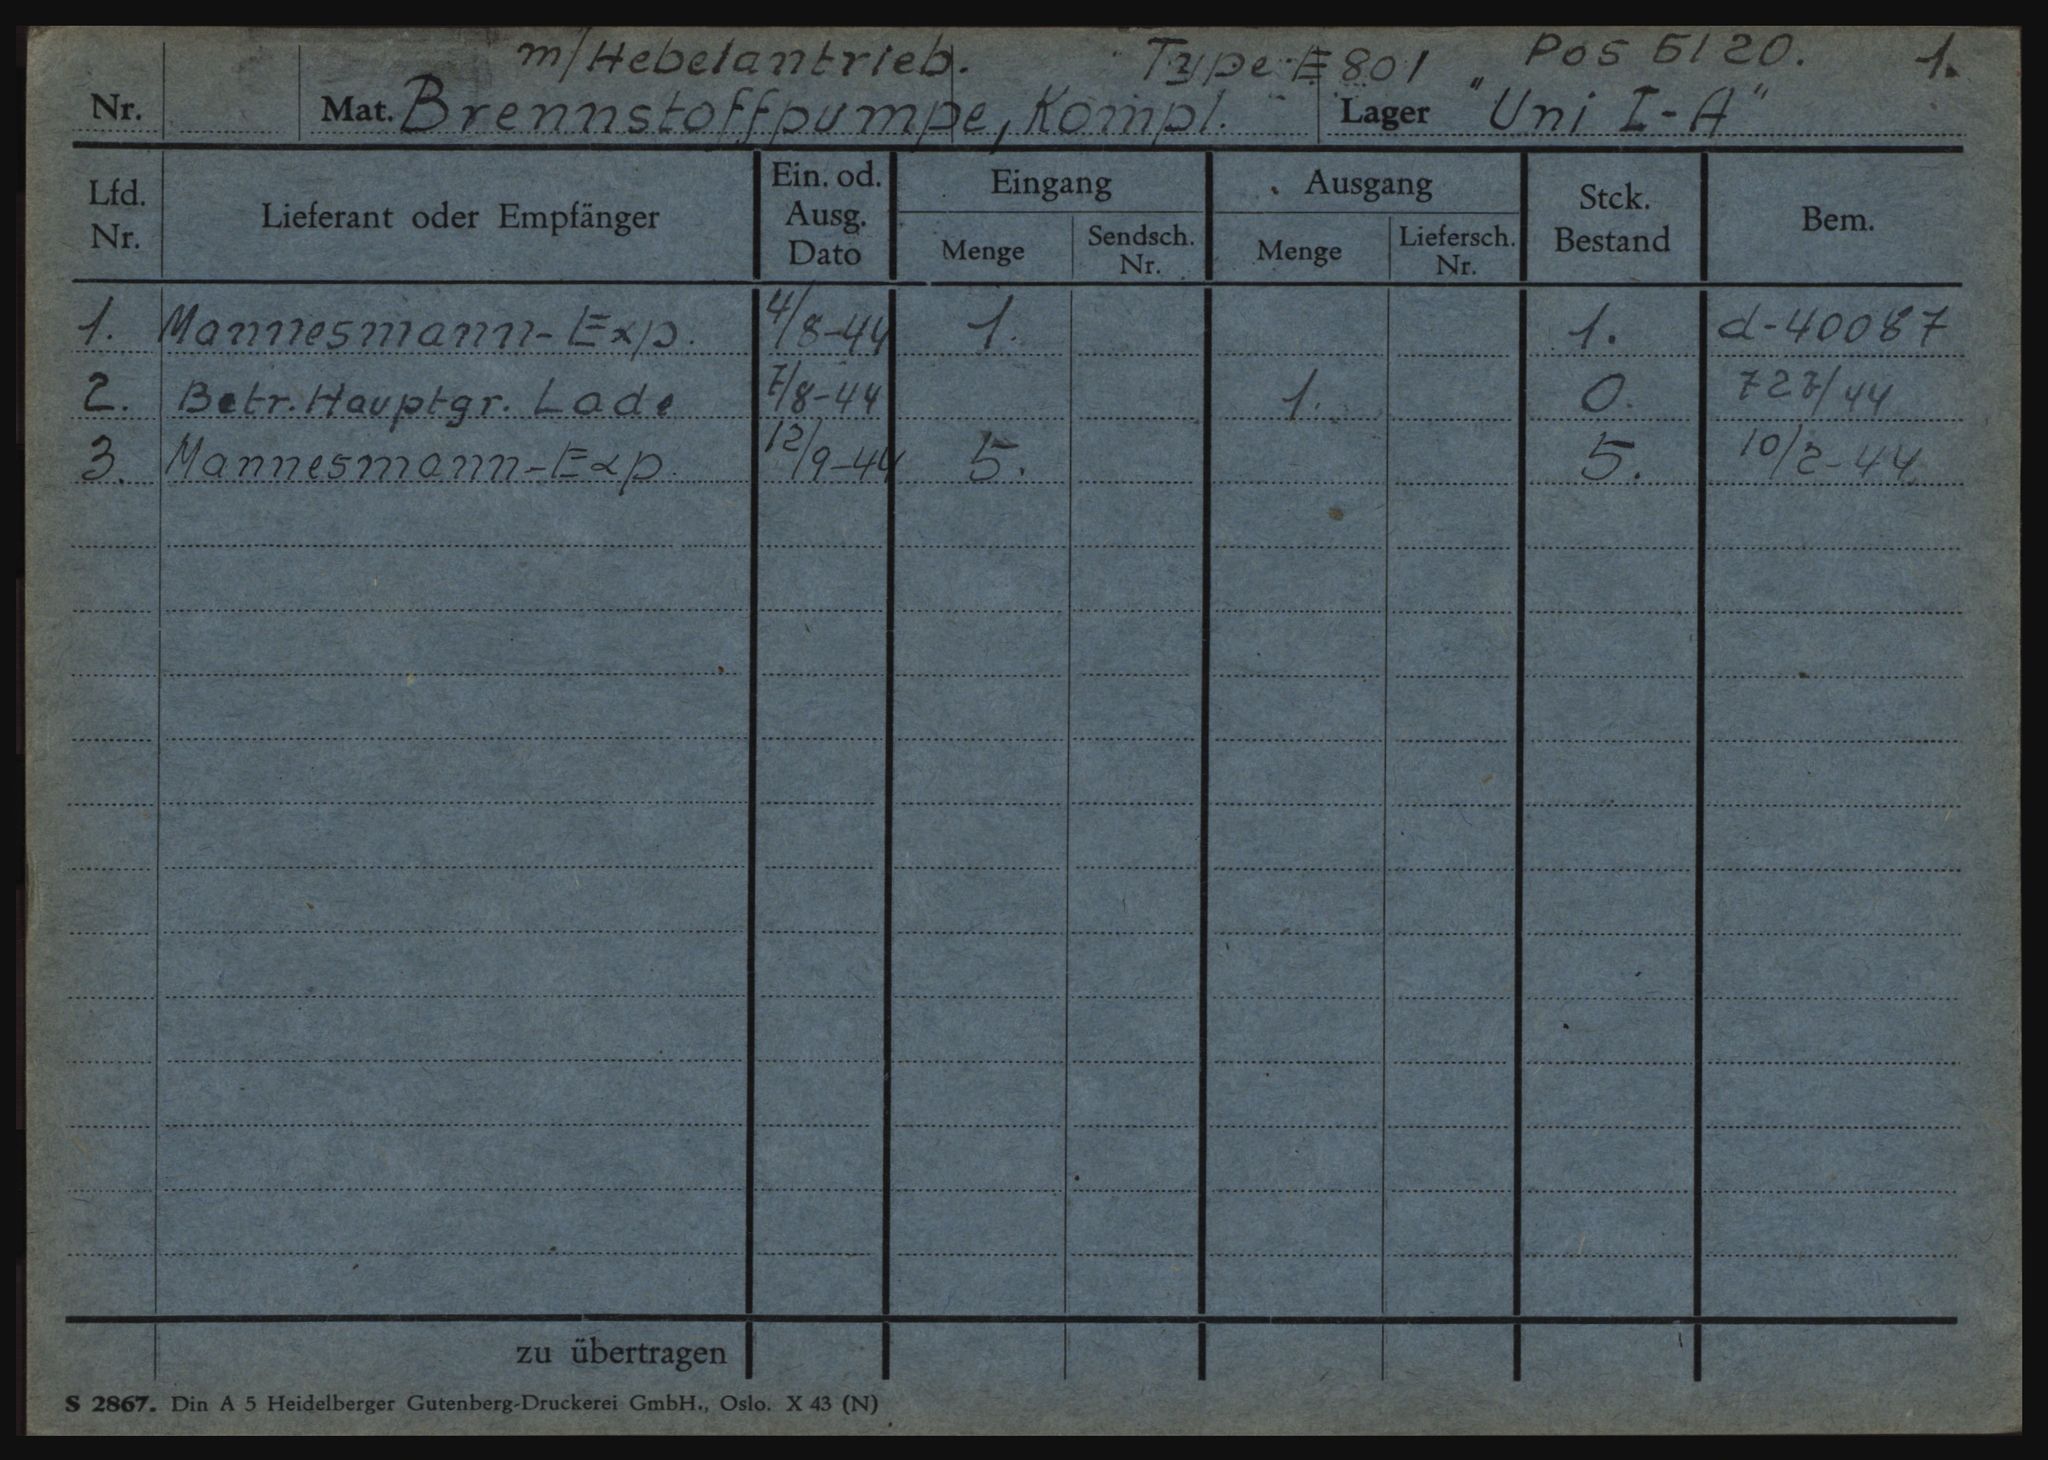 m/Hebelantrieb. Type E 801 Pos 5120. 1.
Nr. Mat. Brennstoffpumpe, Kompl. Lager "Uni I-A"
Lfd. Nr. Lieferant oder Empfänger Ein. od. Ausg. Dato Eingang Menge Sendsch. Nr. Ausgang Menge Liefersch. Nr. Stck. Bestand Bem.
1. Mannesmann-Exp. 4/8-44 1. 1. d-40087
2. Betr. Hauptgr. Lade 7/8-44 1. 0. 727/44
3. Mannesmann-Exp. 12/9-44 5. 5. 10/2-44
zu übertragen
S 2867. Din A 5 Heidelberger Gutenberg-Druckerei GmbH., Oslo. X 43 (N)